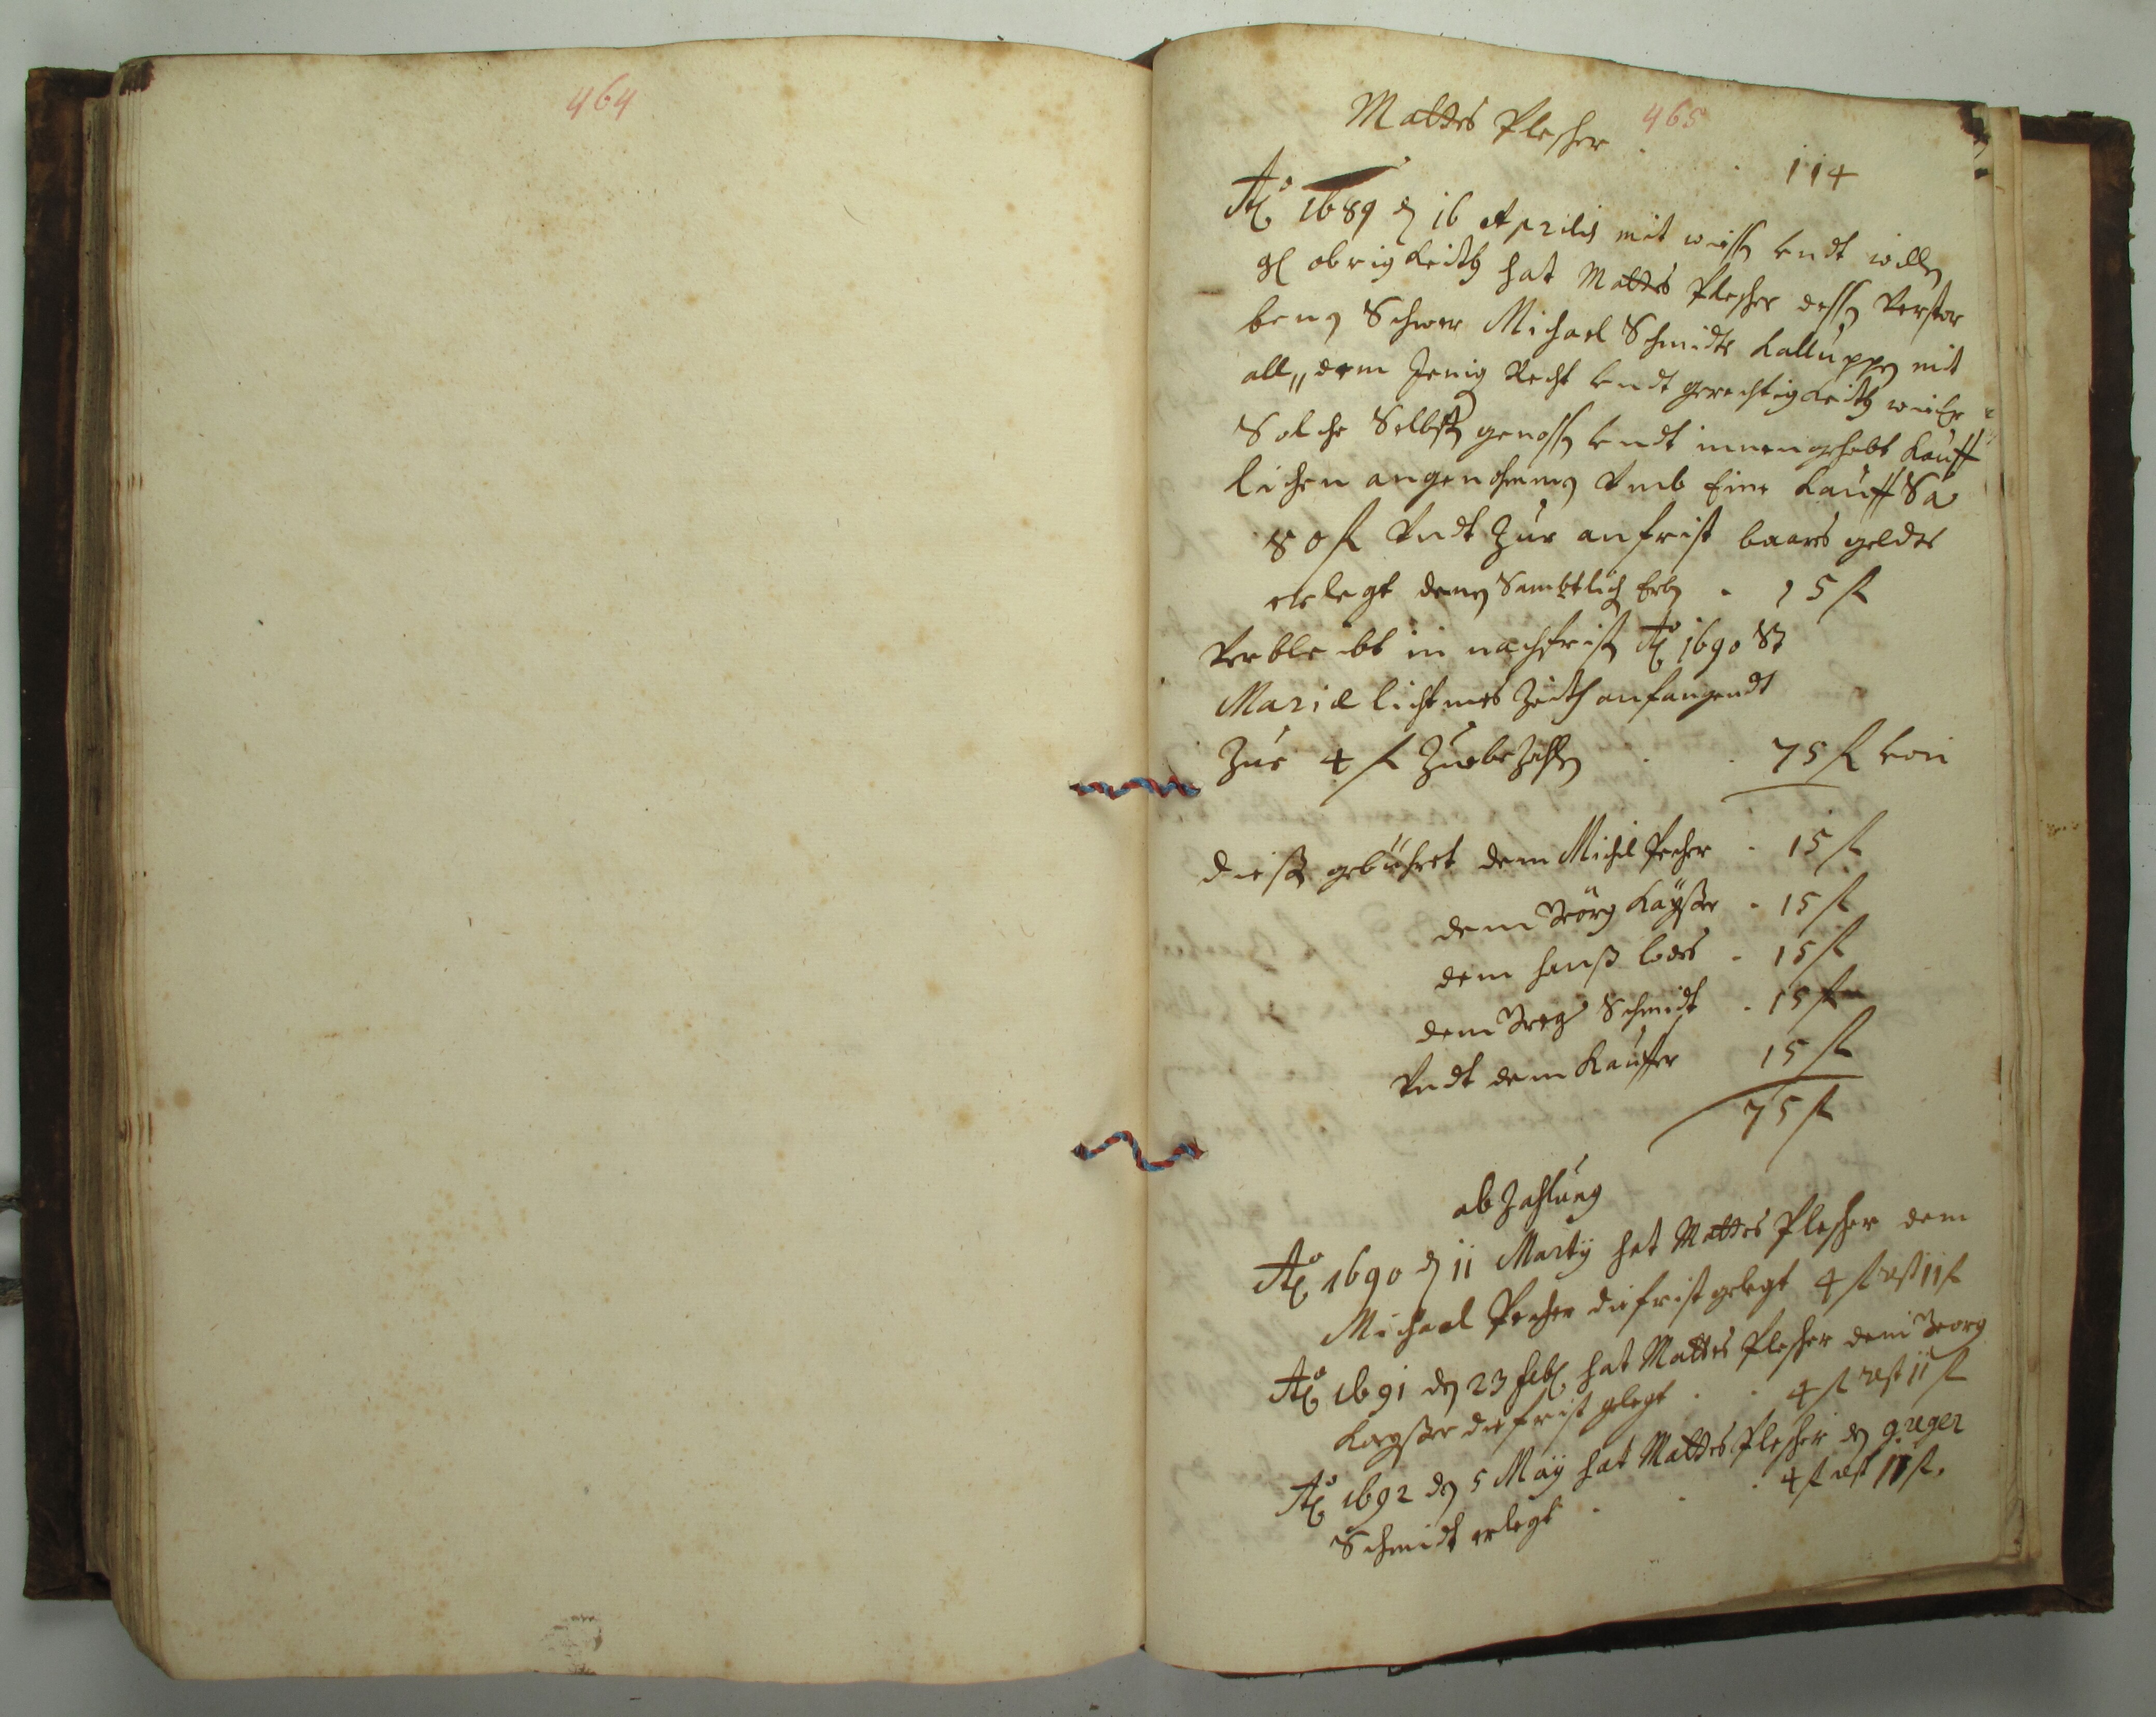 464
465
Mattes Plescher
114
Ao 1689 den 16 Aprilis mit wissen undt willen
gl obrigkeith hat Mattes Plescher dessen verstor
benen Schwer Michael Schmidts kalluppen mit
all dem Jenig Recht undt gerechtigkeith wie Er
Solche Selbsten genossen undt innengehabt kauff
lichen angenohmen Vmb Eine kauff Sa
80 fl Vndt Zur anfrist baares geldes
erlegt denen Sambtlich Erben 15 fl
Verbleibt in nachfristen Ao 1690 St
Mariæ lichtmes Zeith anfangendt
Zue 4 fl Zuebezahlen 75 fl
dießen gebühret dem Michel Pecher 15 fl
dem Jörg Kayßer 15 fl
dem Hanß 15 fl
dem Schmidt 15 fl
Vndt dem Kauffer 15 fl
75 fl
abzahlung
Ao 1690 den 11 Marty hat Mattes Plescher dem
Michael Pecher die frist gelegt 4 fl rest 11 fl
Ao 1691 den 23 feb hat Mattes Plescher dem Georg
Kayßer die frist gelegt 4 fl rest 11 fl
Ao 1692 den 5 May hat Mattes Plescher den greger
Schmidt erlegt 4 fl rest 11 fl.